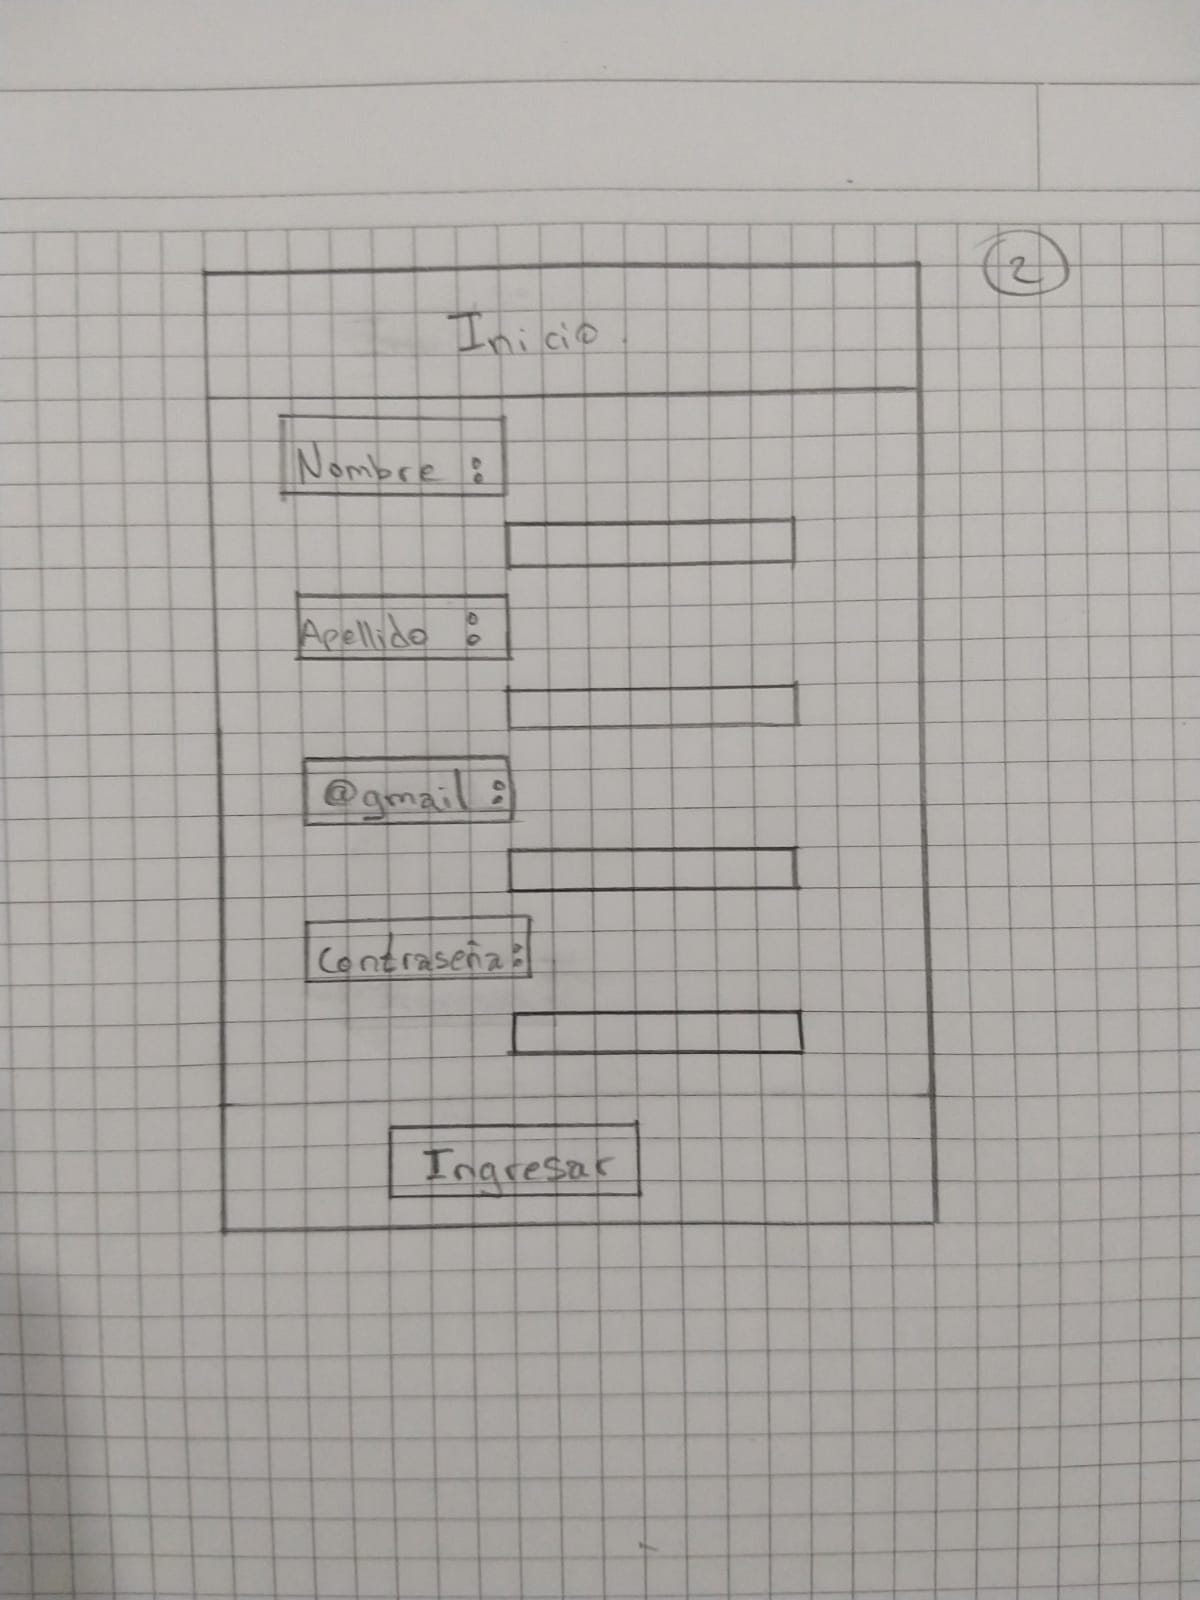 2
Inicio
Nombre :
Apellido :
@gmail :
Contraseña:
Ingresar